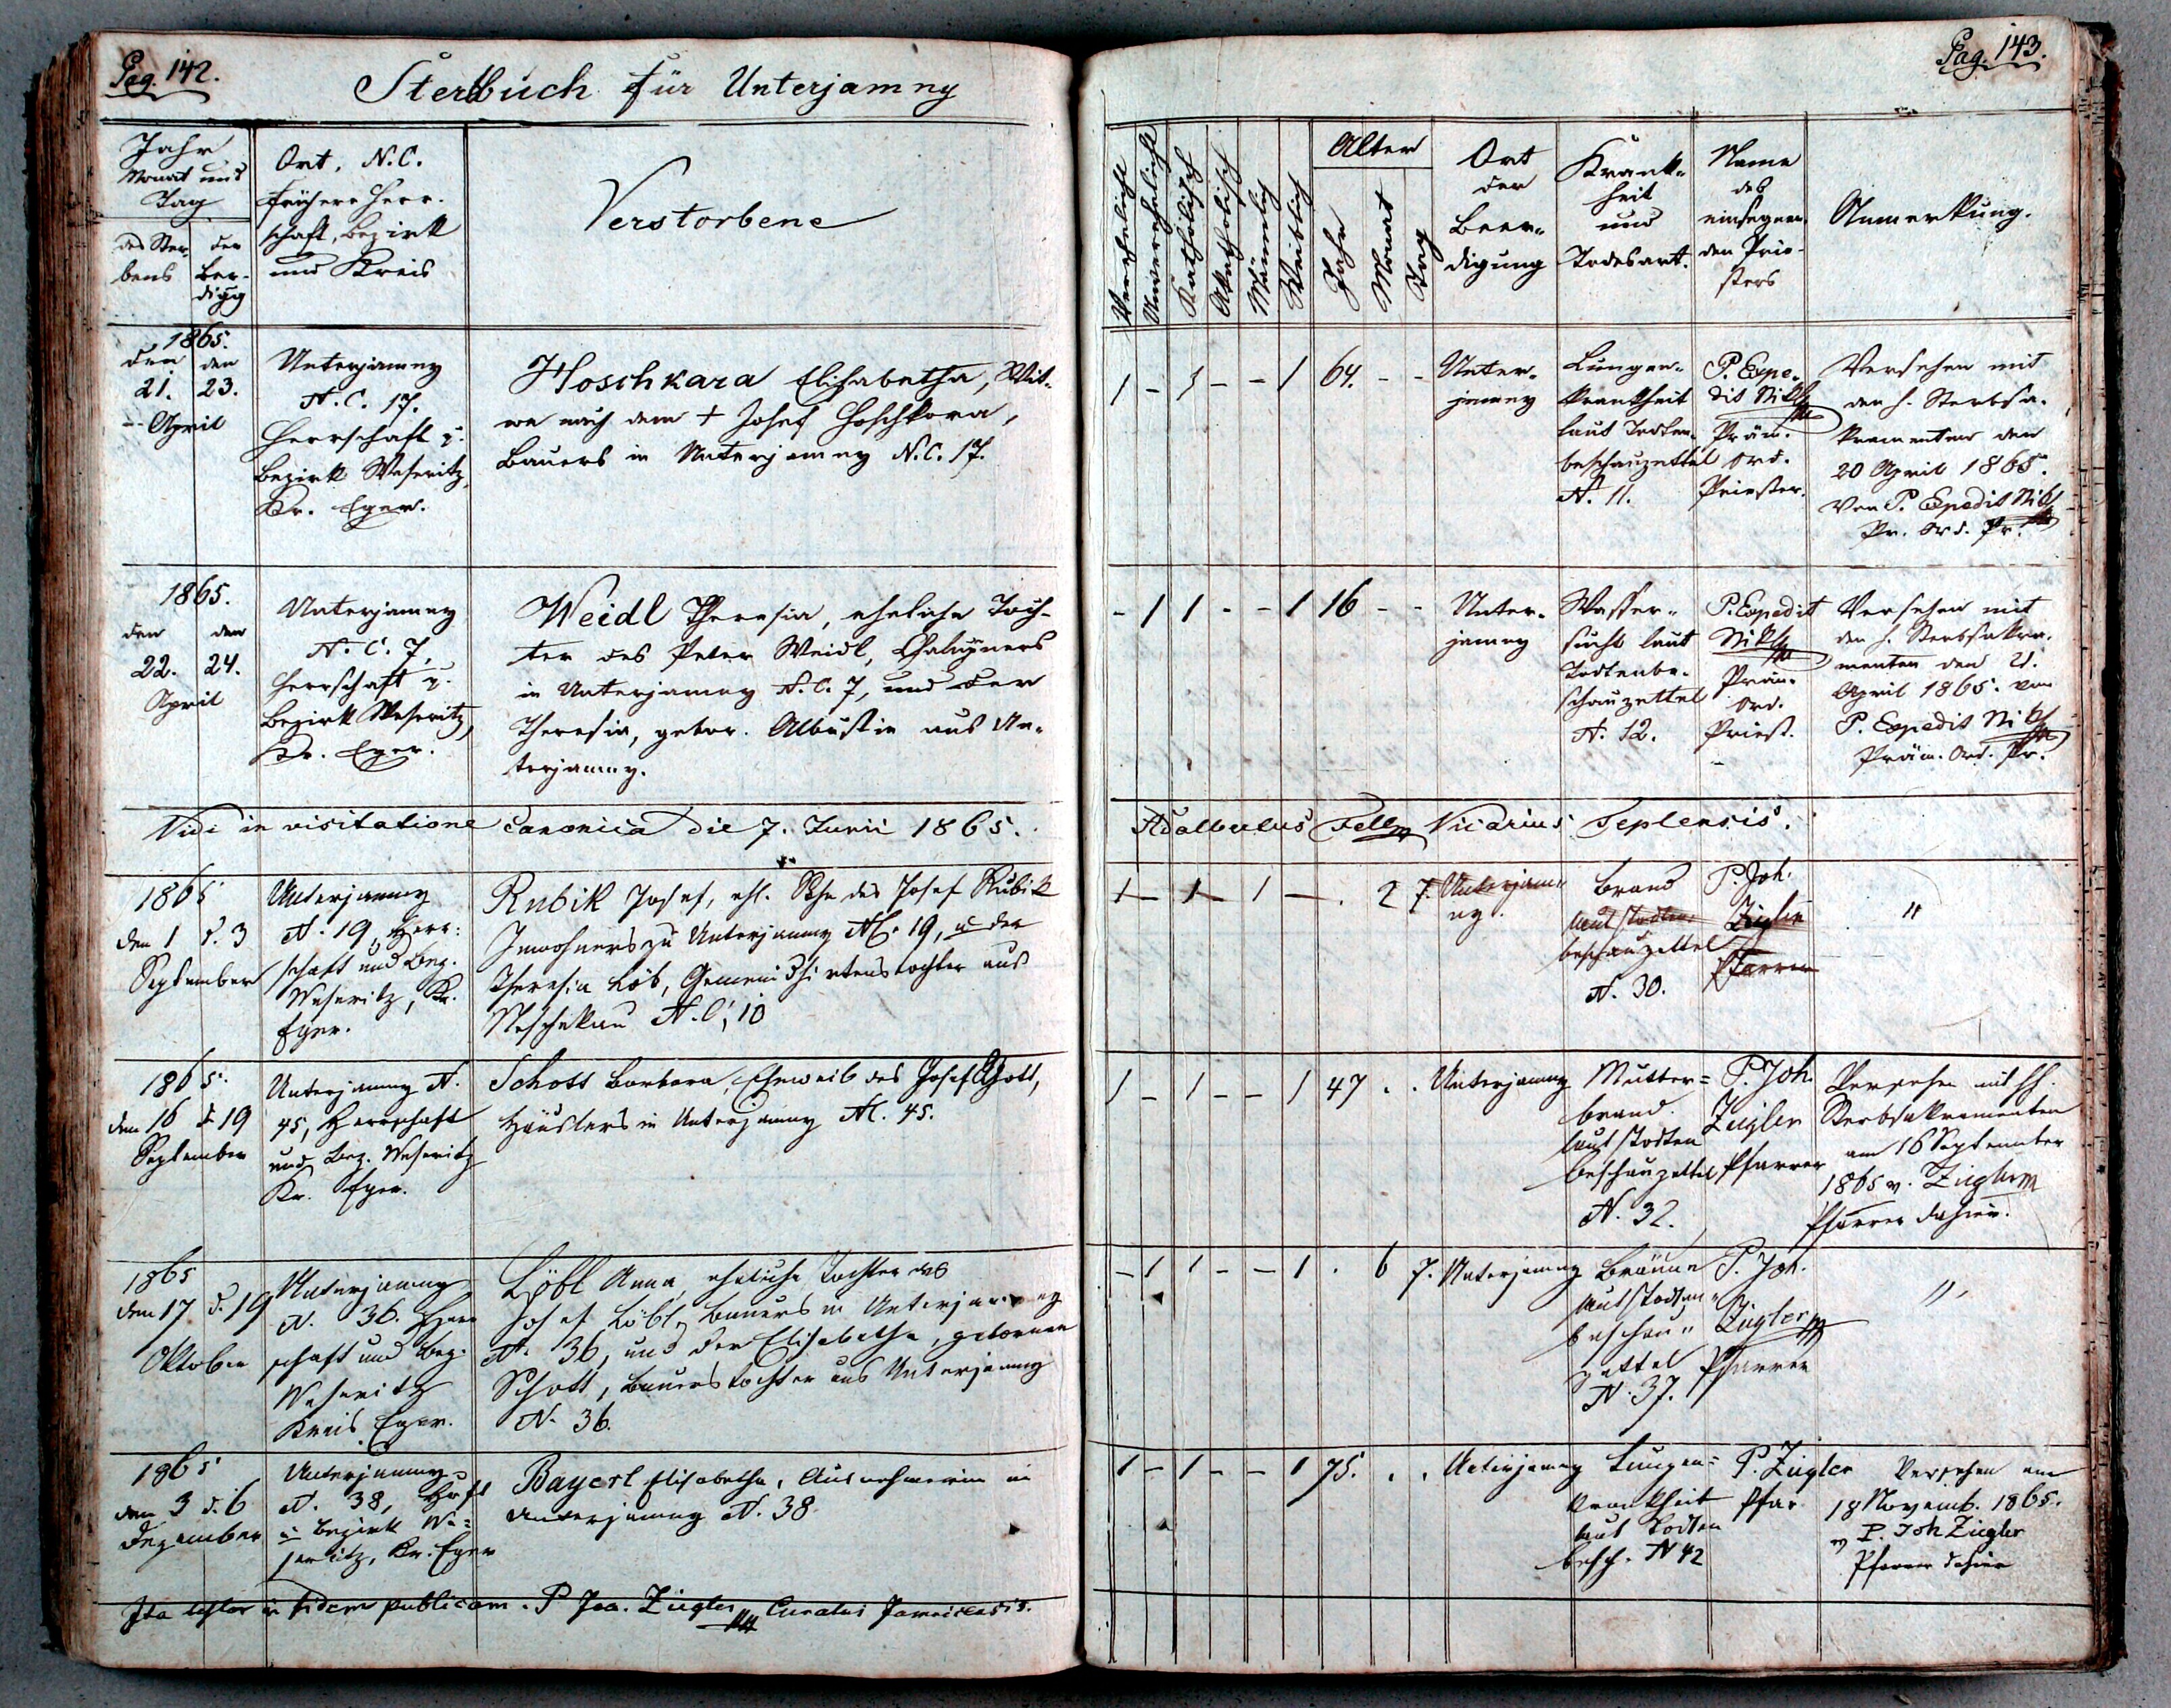 Pag. 142.
Sterbbuch für Unterjamny
Jahr
Monat und
Tag
des Ster-
bens
der
Beer-
digg
Ort, N.C.
frühere Herr-
schaft, Bezirk
und Kreis
Verstorbene
1865.
den den
21. 23.
April
Unterjamny
N.C. 17.
Herrschaft u.
Bezirk Weseritz,
Kr. Eger.
Hoschkara Elisabetha, Wit-
we nach dem + Josef Hoschkara,
Bauers in Unterjamny N.C. 17.
1865.
den den
22. 24.
April
Unterjamny
N.C. 7,
Herrschaft u.
Bezirk Weseritz,
Kr. Eger.
Weidl Theresia, eheliche Toch-
ter des Peter Weidl, Chaluppners
in Unterjamny N.C. 7, und der
Theresia, gebor. Albustin aus Un-
terjamny.
Vidi in visitatione canonica die 7. Junii 1865.
1865
den 1 d. 3
September
Unterjamny
N. 19, Herr-
schaft und Bez.
Weseritz, Kr.
Eger.
Rubik Josef, ehl. Sohn des Josef Rubik
Inwohners zu Unterjamny NC. 19, u der
Theresia Löb, Gemeindhirtenstochter aus
N.C. 10
1865.
den 16 d. 19
September
Unterjamny N.
45, Herrschaft
und Bez. Weseritz
Kr. Eger.
Schott Barbara, Eheweib des Josef Schott,
Häuslers in Unterjamny NC. 45.
1865
den 17 d. 19
Oktober
Unterjamny
N. 36. Herr
schaft und Bez.
Weseritz
Kreis Eger.
Löbl Anna, eheliche Tochter des
Josef Löbl, Bauers in Unterjamny
N. 36, und der Elisabetha, geborenen
Schott, Bauerstochter aus Unterjamny
N. 36.
1865
den 3 d. 6
Dezember
Unterjamny
N. 38, Hrft
u Bezirk We-
seritz, Kr. Eger
Bayerl Elisabetha, Ausnehmerin in
Unterjamny N. 38
Ita testor in fidem publicam. P Joa. Ziegler Curatus Jamnicensis.
Pag. 143.
Verehelicht
Unverehelicht
Katholisch
Akatholisch
Männlich
Weiblich
Alter
Jahr
Monat
Tag
Ort
der
Beer-
digung
Krank-
heit
und
Todesart.
Name
des
einsegnen-
den Prie-
sters
Anmerkung.
1 - 1 - - 1 64. - -
Unter-
jamny
Lungen-
krankheit
laut Todten-
beschauzettel
N. 11.
P. Expe-
dit Nikl
Präm.
Ord.
Priester.
Versehen mit
den h. Sterbsa-
kramenten den
20 April 1865.
von P. Expedit Nikl
Pr. Ord. Pr.
- 1 1 - - 1 16 - -
Unter-
jamny
Wasser-
sucht laut
Todtenbe-
schauzettel
N. 12.
P. Expedit
Nikl
Präm.
Ord.
Priest.
Versehen mit
den h. Sterbsakra-
menten den 21.
April 1865. von
P. Expedit Nikl
Präm. Ord. Pr.
Adalbertus Fell Vicarius Teplensis.
1 - 1 - 1 - . 2 7.
Unterjam-
ny.
Brand
laut Todten-
beschauzettel
N. 30.
P. Joh.
Ziegler
Pfarrer
"
1 - 1 - - 1 47 . .
Unterjamny
Mutter-
brand.
laut Todten
beschauzettel
N. 32.
P. Joh.
Ziegler
Pfarrer
Versehen mit hh.
Sterbsakramenten
am 16 September
1865 v. Ziegler
Pfarrer dahier.
- 1 1 - - 1 . 6 7.
Unterjamny
Bräune
laut Todten-
beschau-
zettel
N. 37.
P. Joh.
Ziegler
Pfarrer
"
1 - 1 - - 1 75. . .
Unterjamny
Lungen-
krankheit
laut Todten
besch. N 42
P. Ziegler
Pfar.
Versehen am
18 Novemb. 1865.
v P. Joh Ziegler
Pfarrer dahier